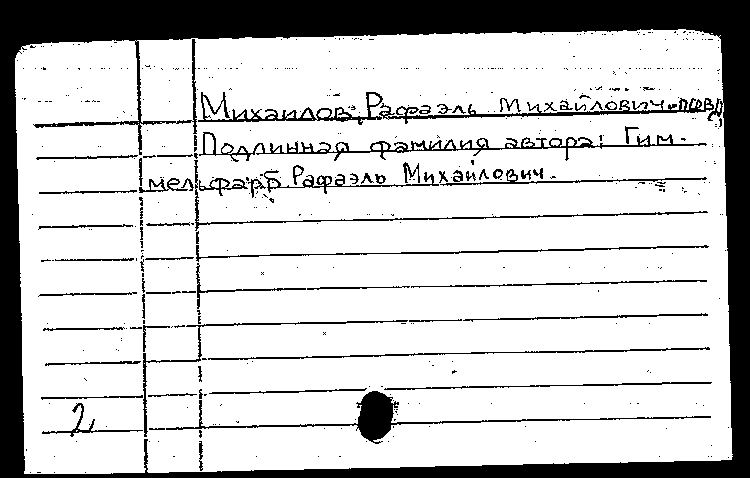 Михаилов, Рафаэль Михайлович-псевд
Подлинная фамилия автора: Гим-
мельфарб Рафаэль Михайлович.
2